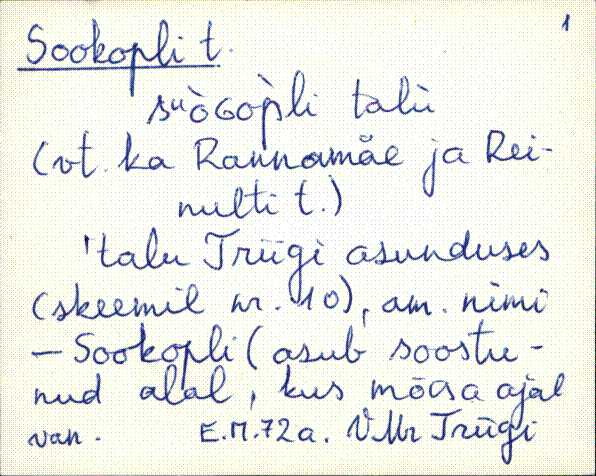 1
Sookopli t.
sᵘ̀òGop̀li talù
(vt. ka Rannamäe ja Rei-
nulti t.)
'talu Triigi asunduses
(skeemil nr. 10), am. nimi
– Sookopli (asub soostu-
nud alal, kus mõisa ajal
van. E.M.72a. VMr Triigi